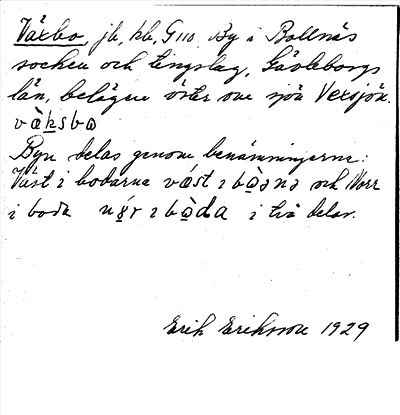 Växbo, jb, kb, G110. By i Bollnäs
socken och tingslag, Gävleborgs
län, belägen öster om sjön Vexsjön.
væ̀ksbɷ
Byn delas genom benämningarna:
Väst i bodarna vǽst ɪ bɷ̀ənə och Norr
i boda nɤ́r ɪ bɷ̀da i två delar.
Erik Eriksson 1929